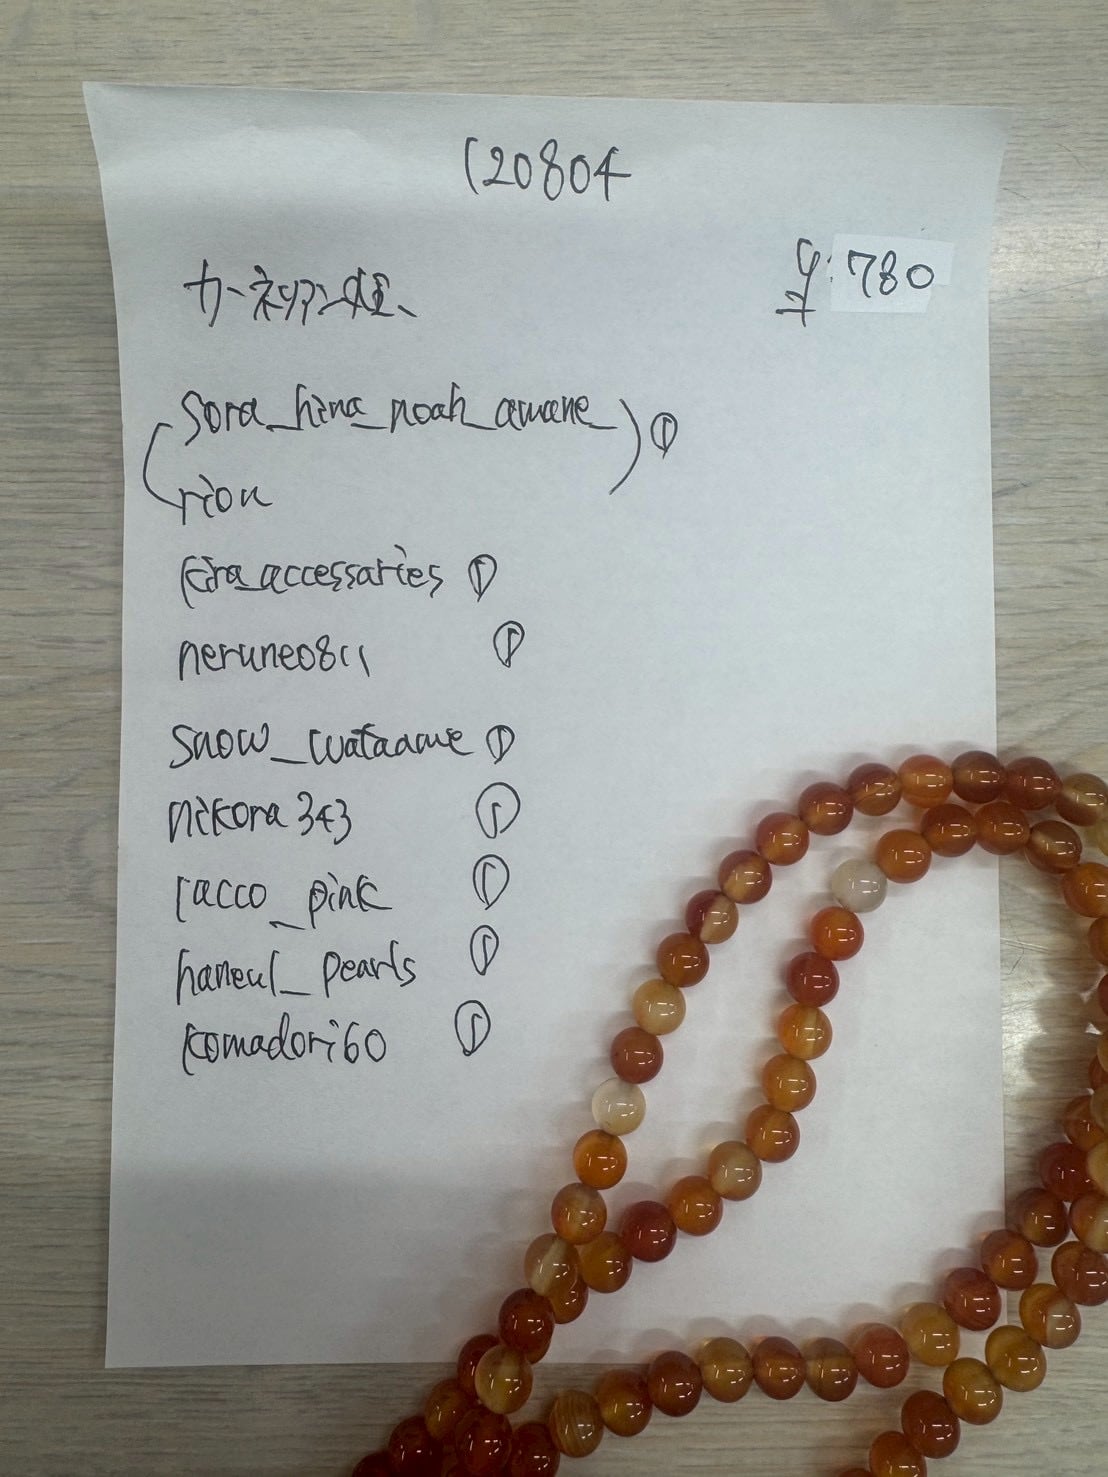 120804
カーネリアン
¥:780
sora_hina_noah_amane_ ①
rion
kira_accessaries ①
nerune0811 ①
snow_wataame ①
nikora343 ①
racco_pink ①
haneul_pearls ①
komadori60 ①